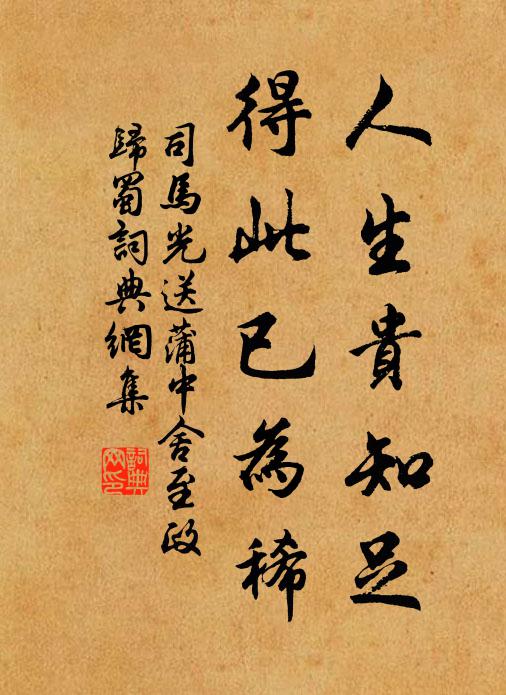 人生貴知足
得此已為稀
司馬光送蒲中舍至政
歸蜀詞典網集
詞典網印